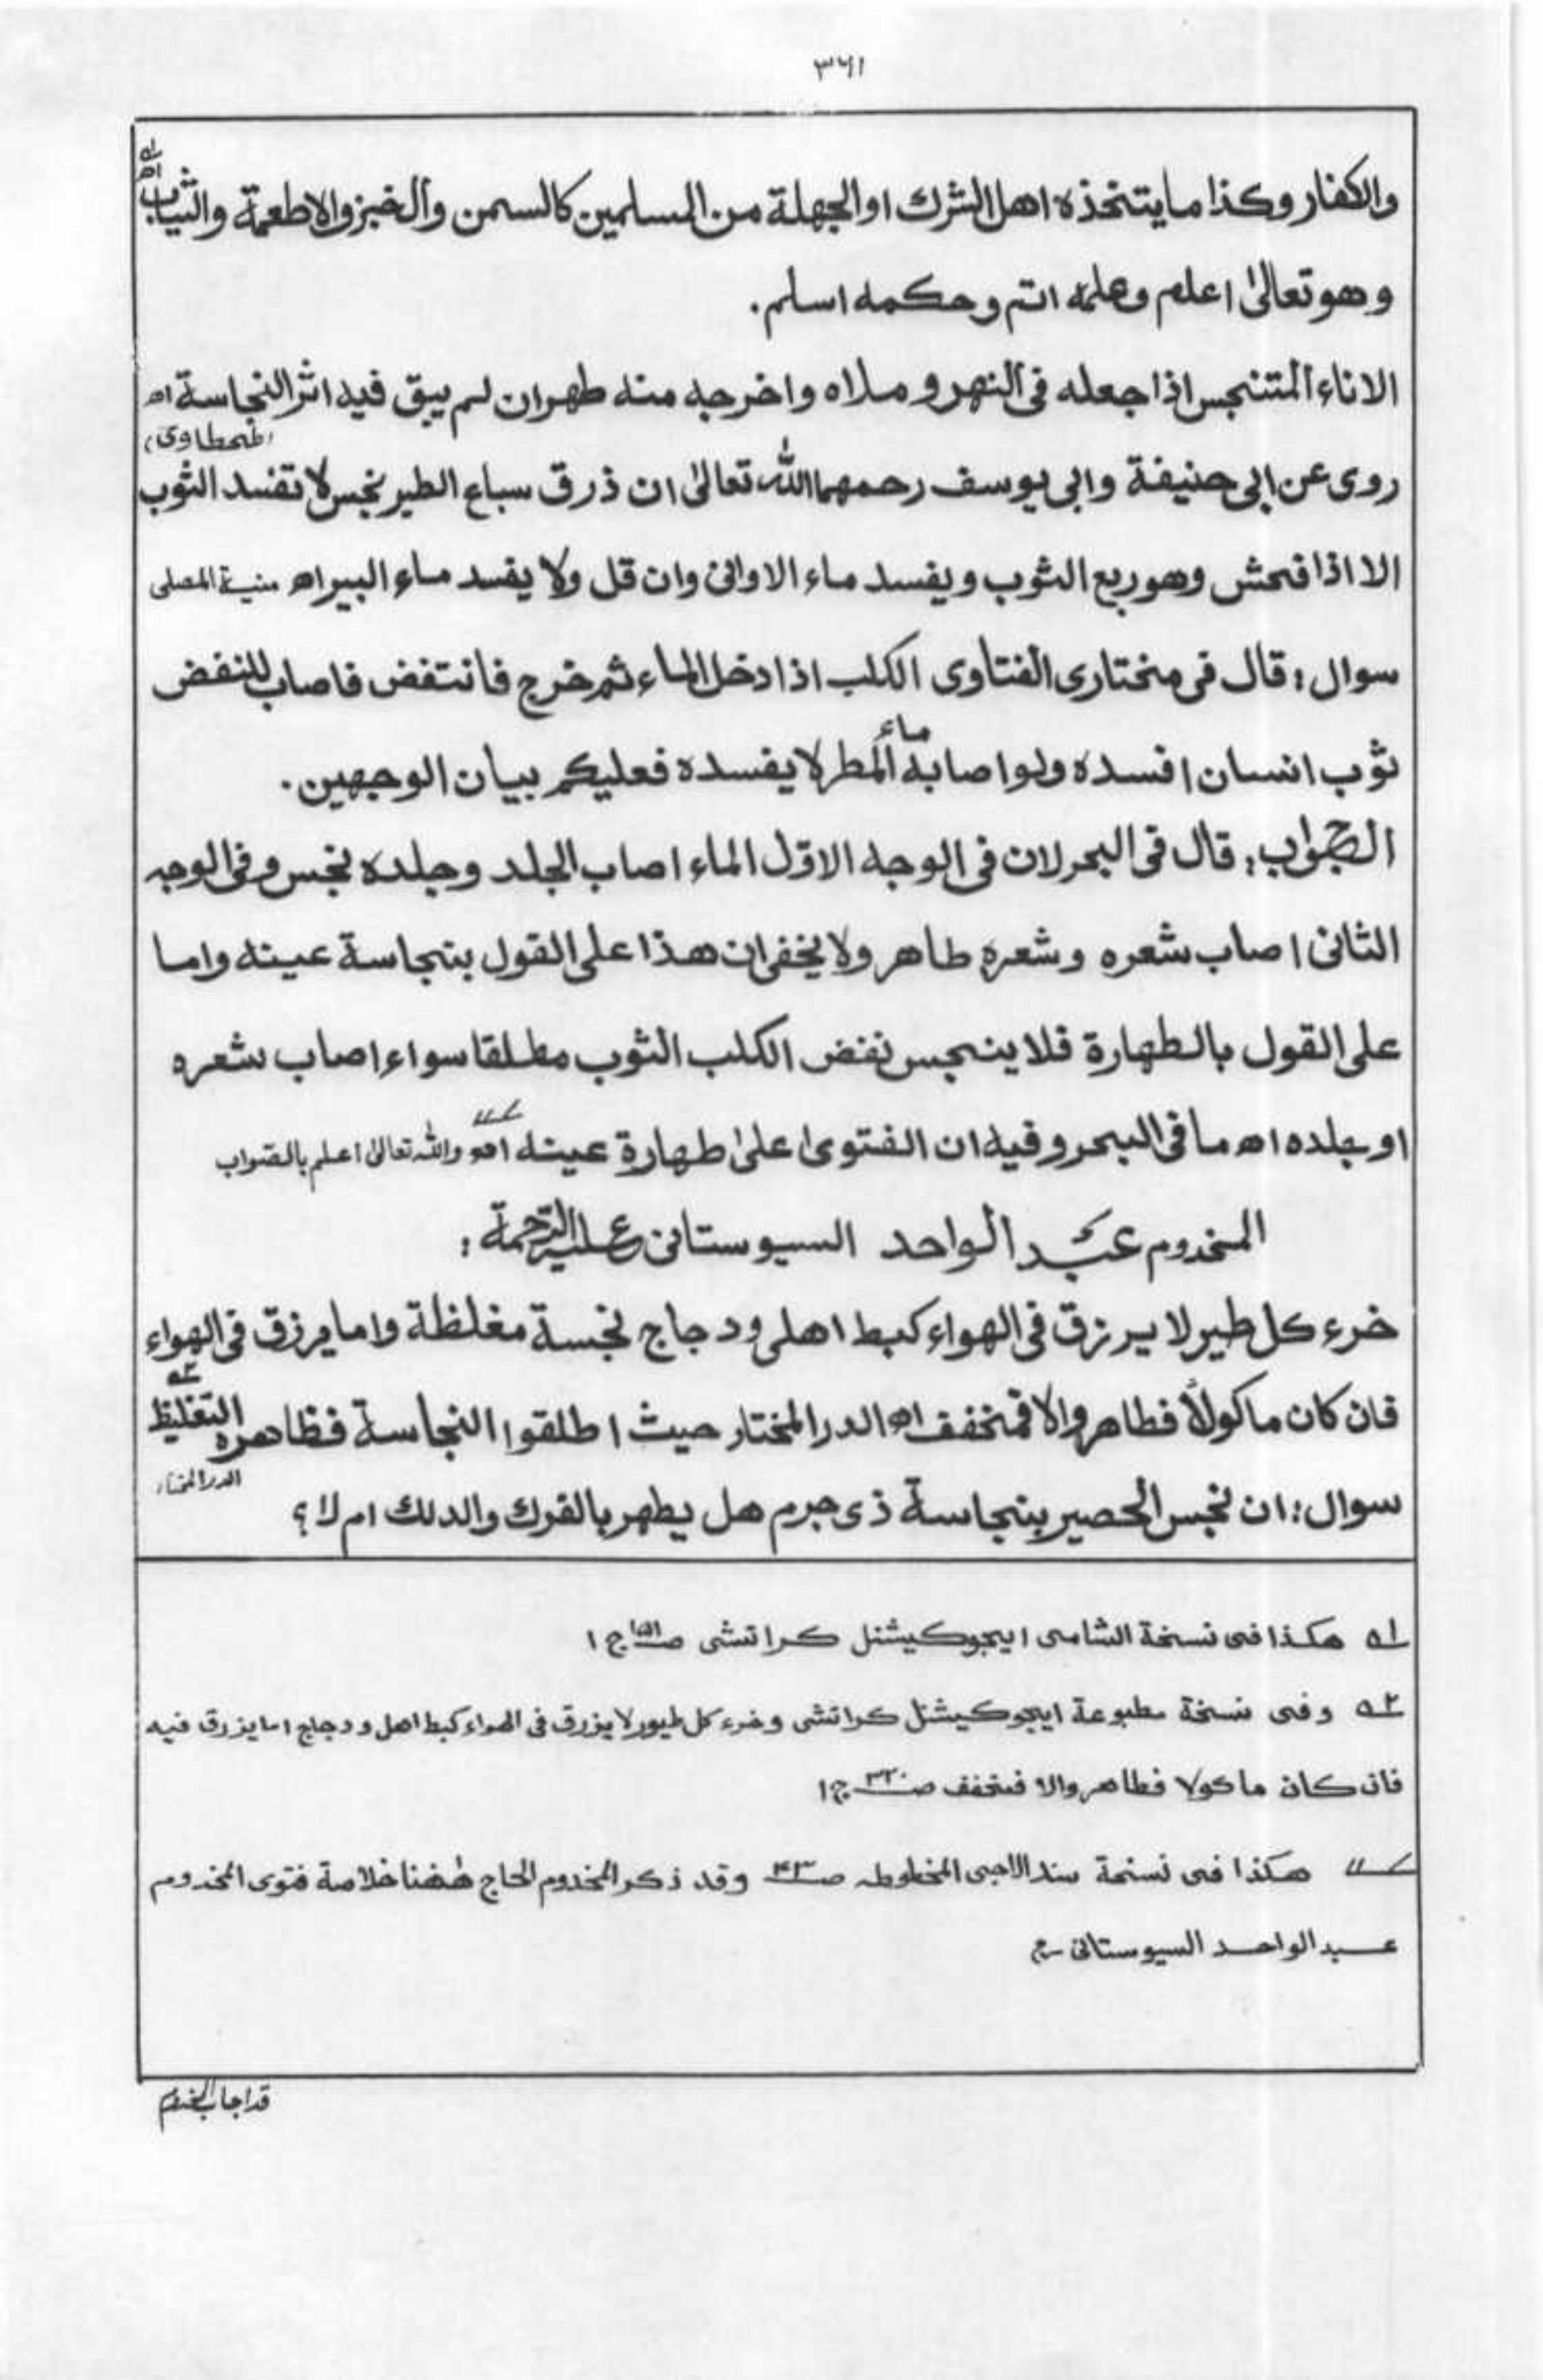 ٣٦١
والكفار وكذا ما يتخذه اهل الشرك او الجهلة من المسلمين كالسمن والخبز والاطعمة والثياب اھ ١ه
وهو تعالىٰ اعلم وعلمه اتم وحكمه اسلم.
الاناء المتنجس اذا جعله فى النهر و ملاه واخرجه منه طهر ان لم يبق فيه اثر النجاسة اھ
(طحطاوى)
روى عن ابى حنيفة وابى يوسف رحمهما الله تعالىٰ ان ذرق سباع الطير نجس لا تفسد الثوب
الا اذا فحش وهو ربع الثوب ويفسد ماء الاوانى وان قل ولا يفسد ماء البير اھ منية المصلى
سوال: قال فى مختارى الفتاوى الكلب اذا دخل الماء ثم خرج فانتفض فاصاب للنفض
ثوب انسان افسده ولو اصابه ماء المطر لا يفسده فعليكم ببيان الوجهين.
الجواب: قال فى البحر لان فى الوجه الاوّل الماء اصاب الجلد وجلده نجس وفى الوجه
الثانى اصاب شعره وشعره طاهر ولا يخفى ان هذا على القول بنجاسة عينه واما
على القول بالطهارة فلا ينجس نفض الكلب الثوب مطلقا سواء اصاب شعره
او جلده اھ ما فى البحر وفيه ان الفتوىٰ علىٰ طهارة عينه اھ والله تعالىٰ اعلم بالصواب
المخدوم عبد الواحد السيوستانى عليه الرحمة:
خرء كل طير لا يرزق فى الهواء كبط اهلى ودجاج نجسة مغلظة واما يرزق فى الهواء
فان كان ماكولاً فطاهر والا فمخفف اھ الدر المختار حيث اطلقوا النجاسة فظاهره التغليظ ٢ه
الدر المختار
سوال: ان نجس الحصير بنجاسة ذى جرم هل يطهر بالفرك والدلك ام لا؟
١ه هكذا فى نسخة الشامى ايجوكيشنل كراتشى ج ١
٢ه وفى نسخة مطبوعة ايجوكيشنل كراتشى وخرء كل طيور لا يزرق فى الهواء كبط اهل ودجاج اما يزرق فيه
فان كان ماكولا فطاهر والا فمخفف صـ٣٢٠ ج ١
هكذا فى نسخة المخطوطه صـ٤٣ وقد ذكر المخدوم الحاج ههنا خلاصة فتوى المخدوم
عبد الواحد السيوستانى
قد اجاب المخدوم